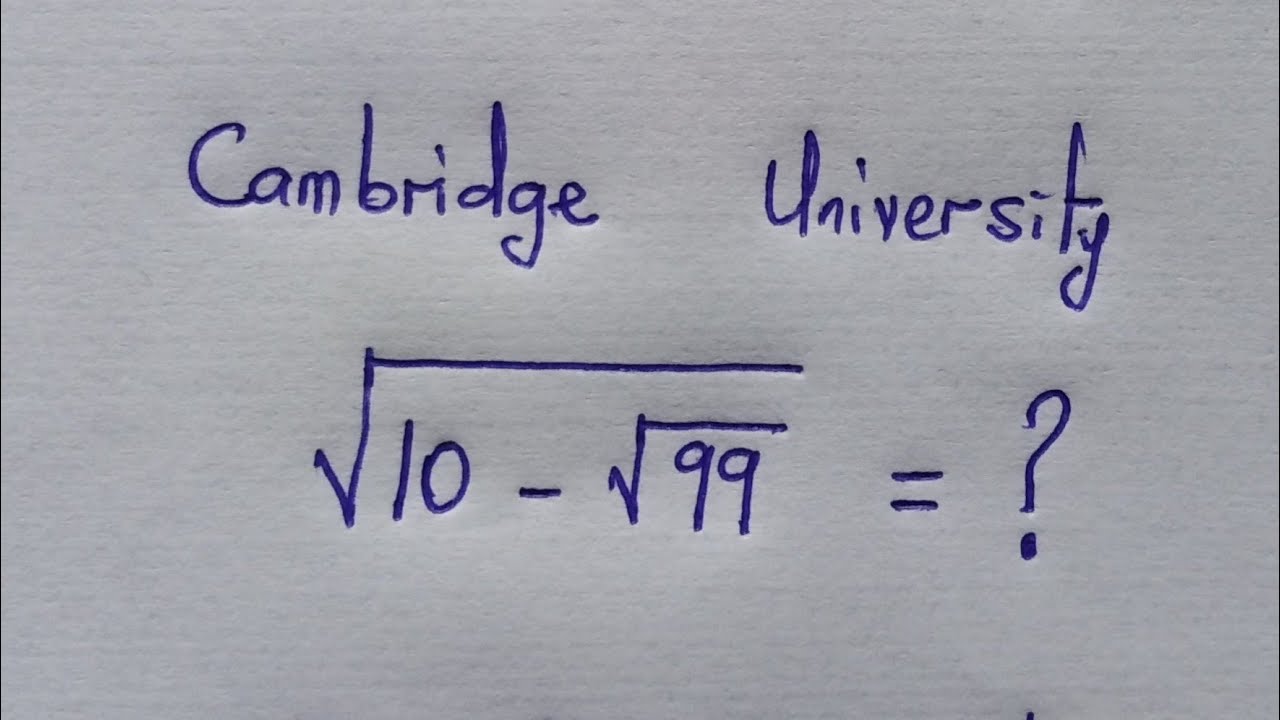 Cambridge University
√(10 - √99) = ?